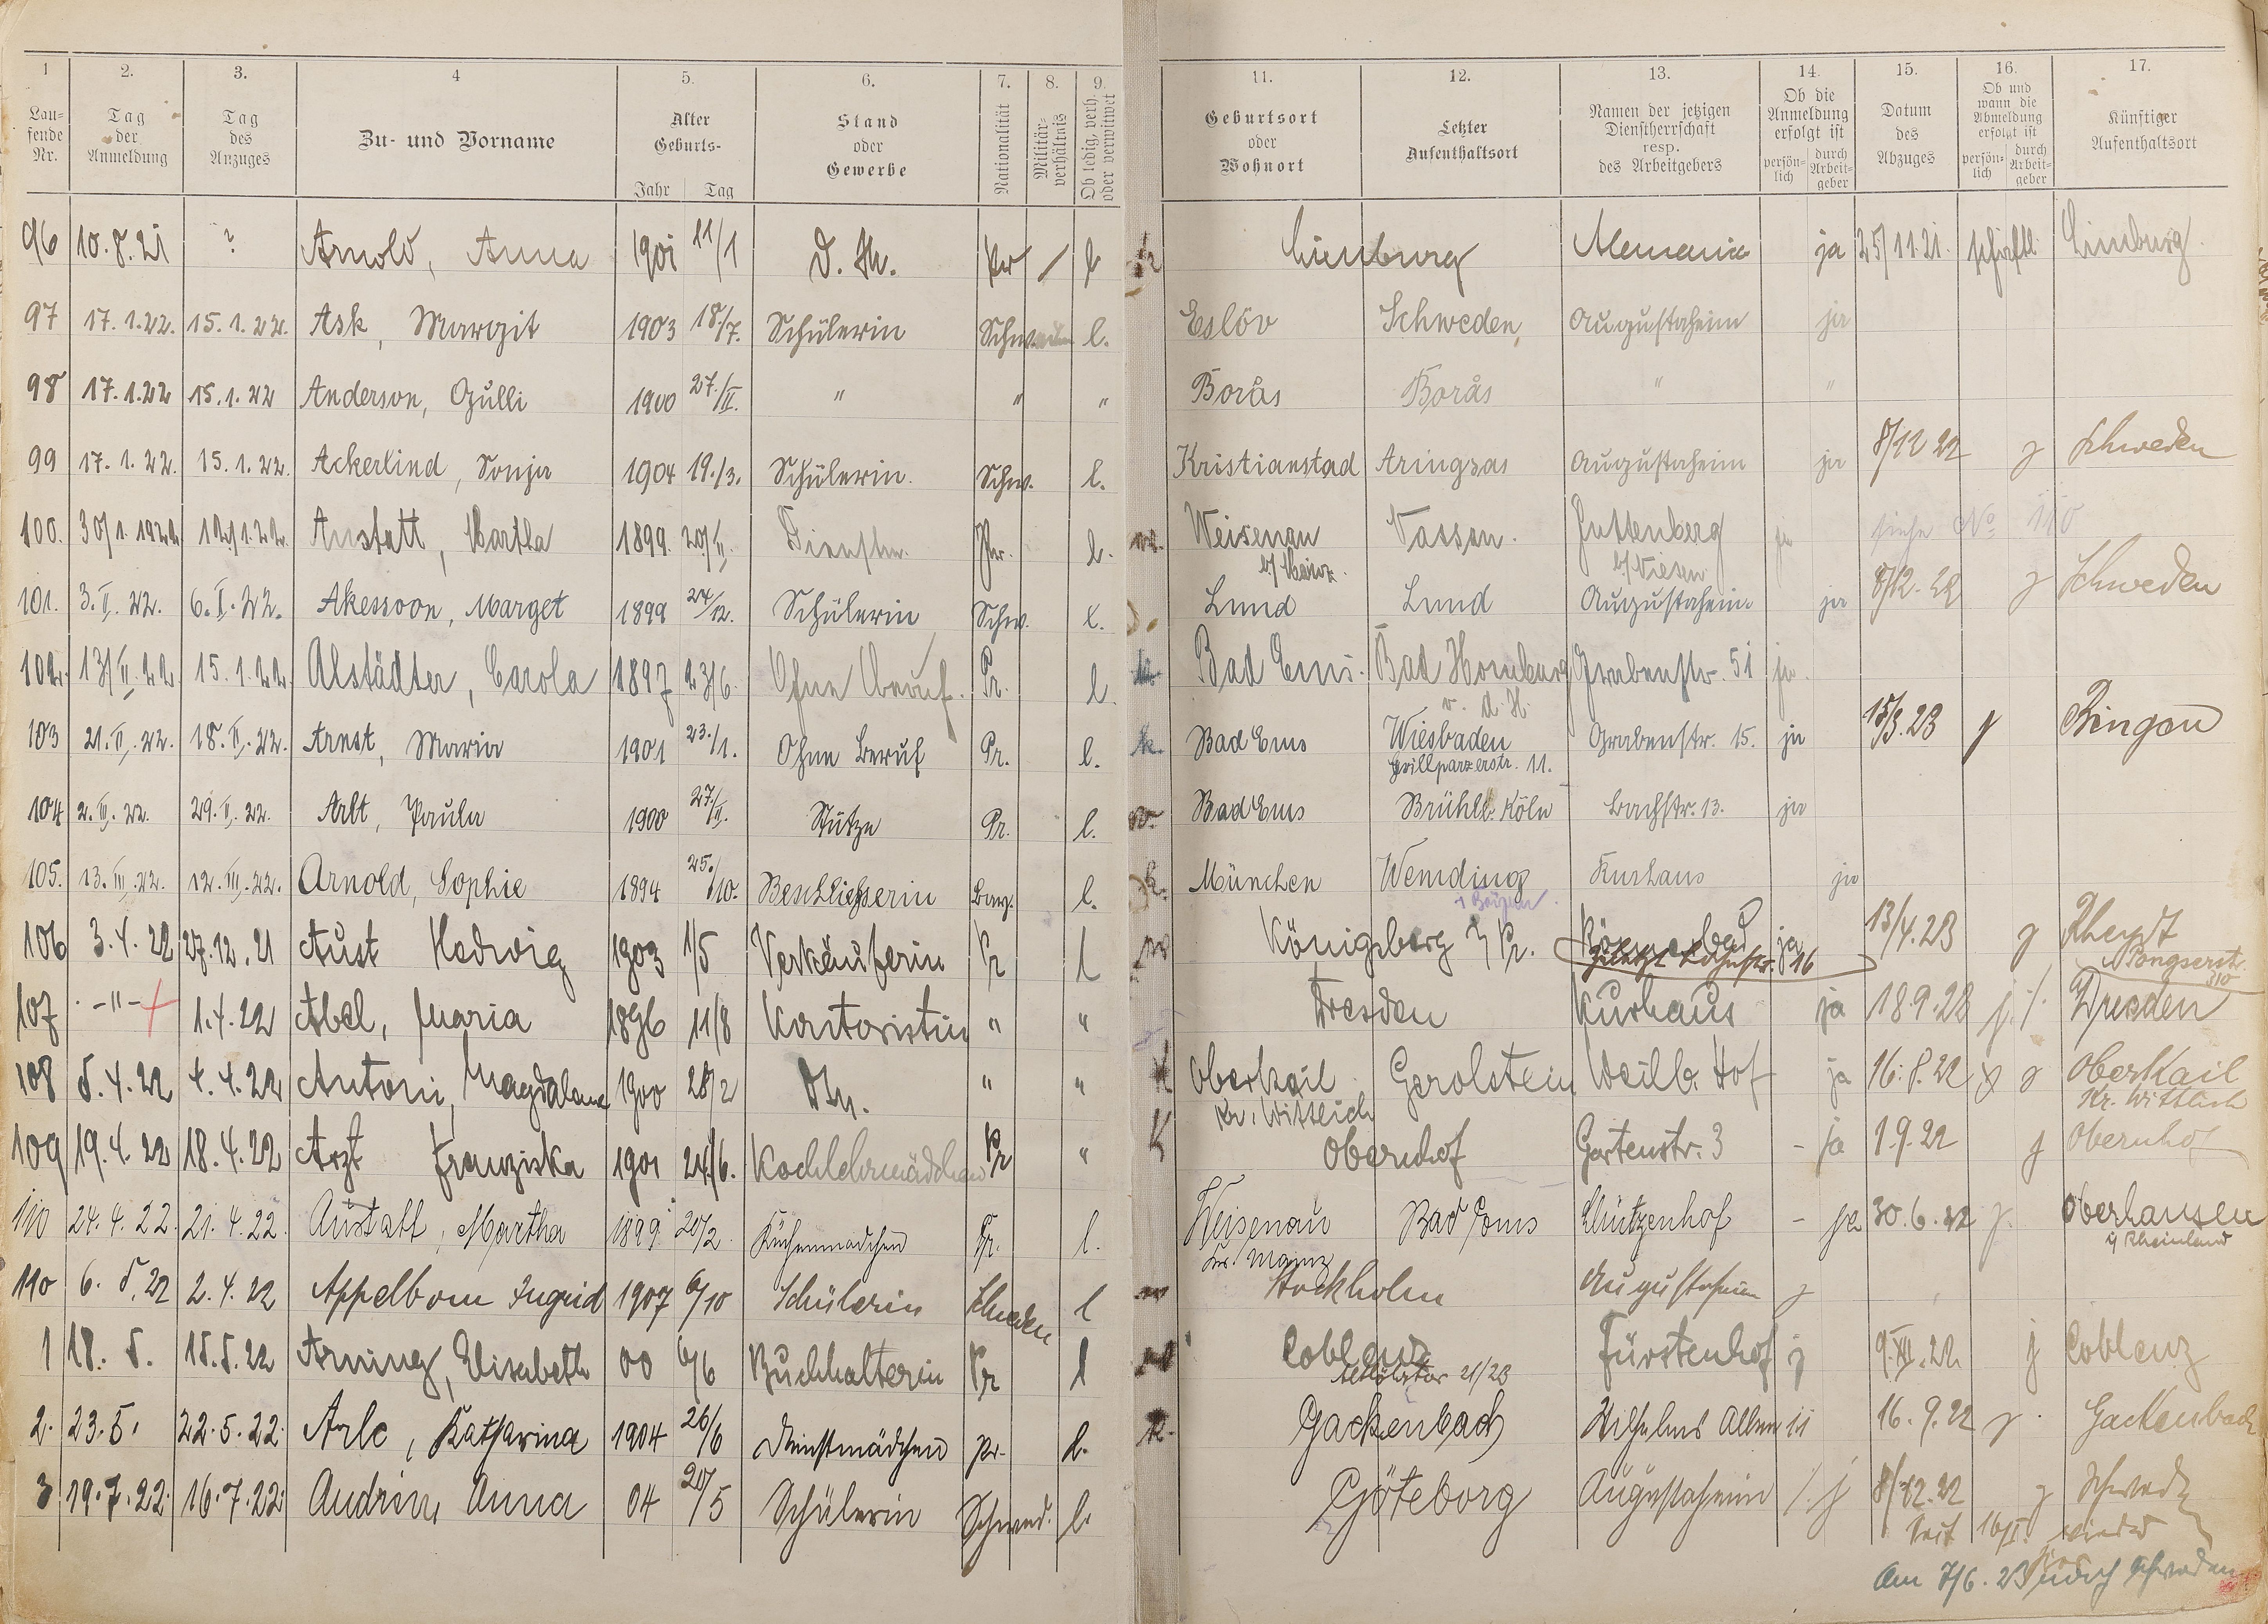 1 2. 3. 4 5. 6. 7. 8. 9. 11. 12. 13. 14. 15. 16. 17.
Laufende Nr. Tag der Anmeldung Tag des Anzuges Zu- und Vorname Alter Geburts- Jahr Tag Stand oder Gewerbe Nationalität Militärverhältnis Ob ledig, verh. oder verwitwet Geburtsort oder Wohnort Letzter Aufenthaltsort Namen der jetzigen Dienstherrschaft resp. des Arbeitgebers Ob die Anmeldung erfolgt ist persönlich durch Arbeitgeber Datum des Abzuges Ob und wann die Abmeldung erfolgt ist persönlich durch Arbeitgeber Künftiger Aufenthaltsort
96 10.8.21 ? Arnold, Anna 1901 11/1 D. M. Pr / l Limburg Alemania ja 25/11.21. schriftl. Limburg
97 17.1.22. 15.1.22. Ask, Margit 1903 18/7. Schülerin Schweden l. Eslöv Schweden, Augustaheim ja
98 17.1.22 15.1.22 Anderson, Gulli 1900 27./II. " " " Borås Borås " "
99 17.1.22. 15.1.22. Ackerlind, Sonja 1904 19./3. Schülerin. Schw. l. Kristianstad Aringsas Augustaheim ja 8/12 22 j Schweden
100. 30/1.1922 12/1.22. Anstatt, Martha 1899. 20/II. Dienstm. Pr. l. Weisenau Nassau. Guttenberg ja siehe No 110
b/ Mainz. b/ Niesen
101. 3.II.22. 6.I.22. Akessoon, Marget 1899 24/12. Schülerin Schw. l. Lund Lund Augustaheim ja 8/12.22 j Schweden
102. 13/II.22 15.1.22 Alstädter, Carola 1897 23/6. Ohne Beruf. Pr. l. Bad Ems. Bad Homburg Grabenstr. 51 ja.
v. d. H.
103 21.II.22. 18.II.22. Arnst, Maria 1901 23./1. Ohne Beruf Pr. l. k. Bad Ems Wiesbaden Grabenstr. 15. ja 15/3.23 j Bingen
Grillparzerstr. 11.
104 2.III.22. 29.II.22. Arlt, Paula 1900 27./II. Stütze Pr. l. Bad Ems Brühl b. Köln Bachstr. 13. ja
105. 13.III.22. 12.III.22. Arnold, Sophie 1894 25./10. Beschließerin Bay. l. k. München Wemding Kurhaus ja
i Bayern.
106 3.4.22 27.12.21 Aust Hedwig 1903 1/5 Verkäuferin Pr l Königsberg i/ Pr. Römerbad ja 13/4.23 j Rheydt
Pongserstr. 310
107 -"- 1.4.22 Abel, Maria 1896 11/8 Kontoristin " " Dresden Kurhaus ja 18.9.22 j. /. Dresden
108 5.4.22 4.4.22 Antoni, Magdalena 1900 28/2 DM. " " K Oberkail Gerolstein Weilb. Hof ja 16.8.22 j Oberkail
Kr. Wittlich Kr. Wittlich
109 19.4.22 18.4.22 Arzt Franziska 1901 24./6. Kochlehrmädchen Pr " K Obernhof Gartenstr. 3 - ja 1.9.22 j Obernhof
110 24.4.22. 21.4.22. Anstatt, Martha 1899 20/2. Küchenmädchen Pr. l. Weisenau Bad Ems Schützenhof - ja 30.6.22 j. Oberhausen
Kr. Mainz i/ Rheinland
110 6.5.22 2.4.22 Appelbom Ingrid 1907 6/10 Schülerin Schweden l Stockholm Augustaheim j
1 18.5. 15.5.22 Arning, Elisabeth 00 6/6 Buchhalterin Pr l Coblenz Fürstenhof j 9.XII.22. j Coblenz
21/23
2. 23.5. 22.5.22. Arlc, Katharina 1904 26/6 Dienstmädchen pr. l. k. Gackenbach Wilhelms Allee 11 16.9.22 j. Gackenbach
3 19.7.22. 16.7.22. Audrin, Anna 04 20/5 Schülerin Schwed. l. Göteborg Augustaheim /. j 8/12.22 j Schwed.
Seit 16/I. wieder
hier
Am 7/6.23 nach Schweden